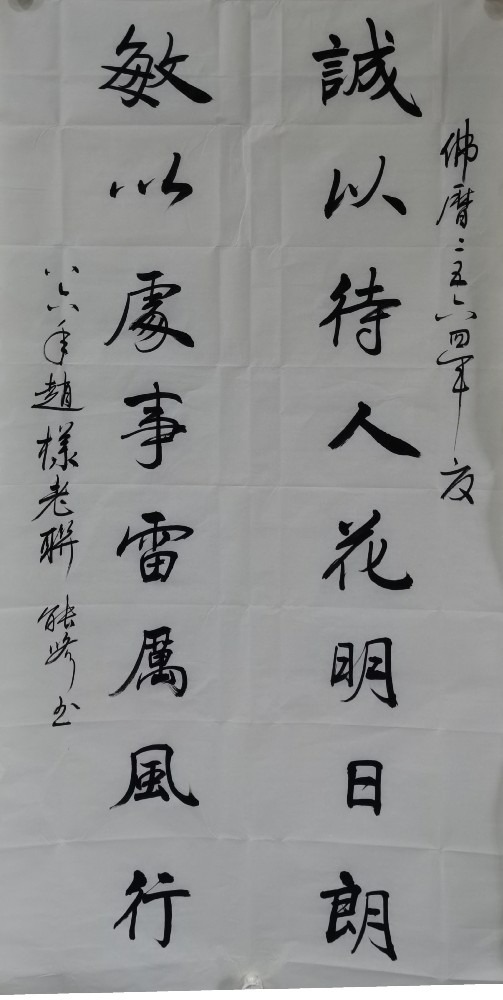 佛曆二五六四年夜
誠以待人花明日朗
敏以處事雷厲風行
八六年趙樸老聯 能修书